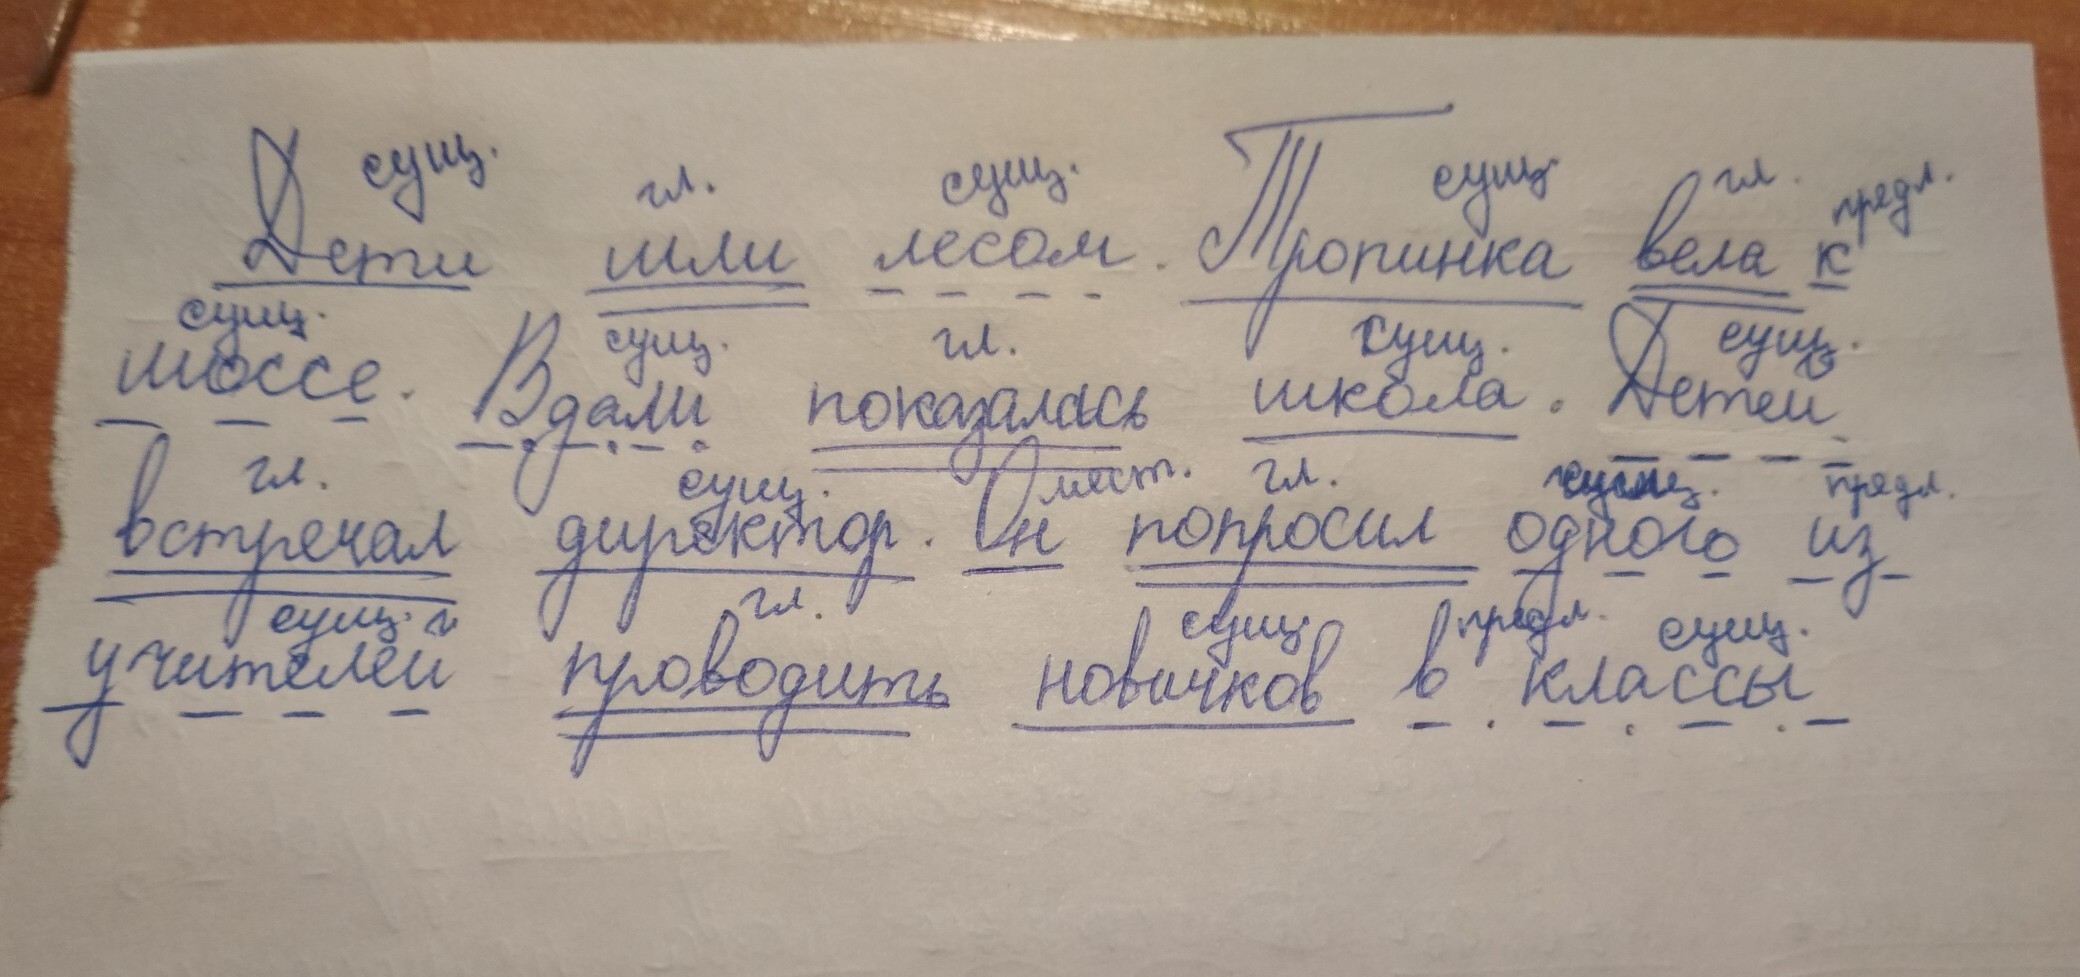 сущ. гл. сущ. сущ. гл. предл.
Дети шли лесом. Тропинка вела к
сущ. сущ. гл. сущ. сущ.
шоссе. Вдали показалась школа. Детей
гл. сущ. мест. гл. предл.
встречал директор. Он попросил одного из
сущ. гл. сущ. предл. сущ.
учителей проводить новичков в классы